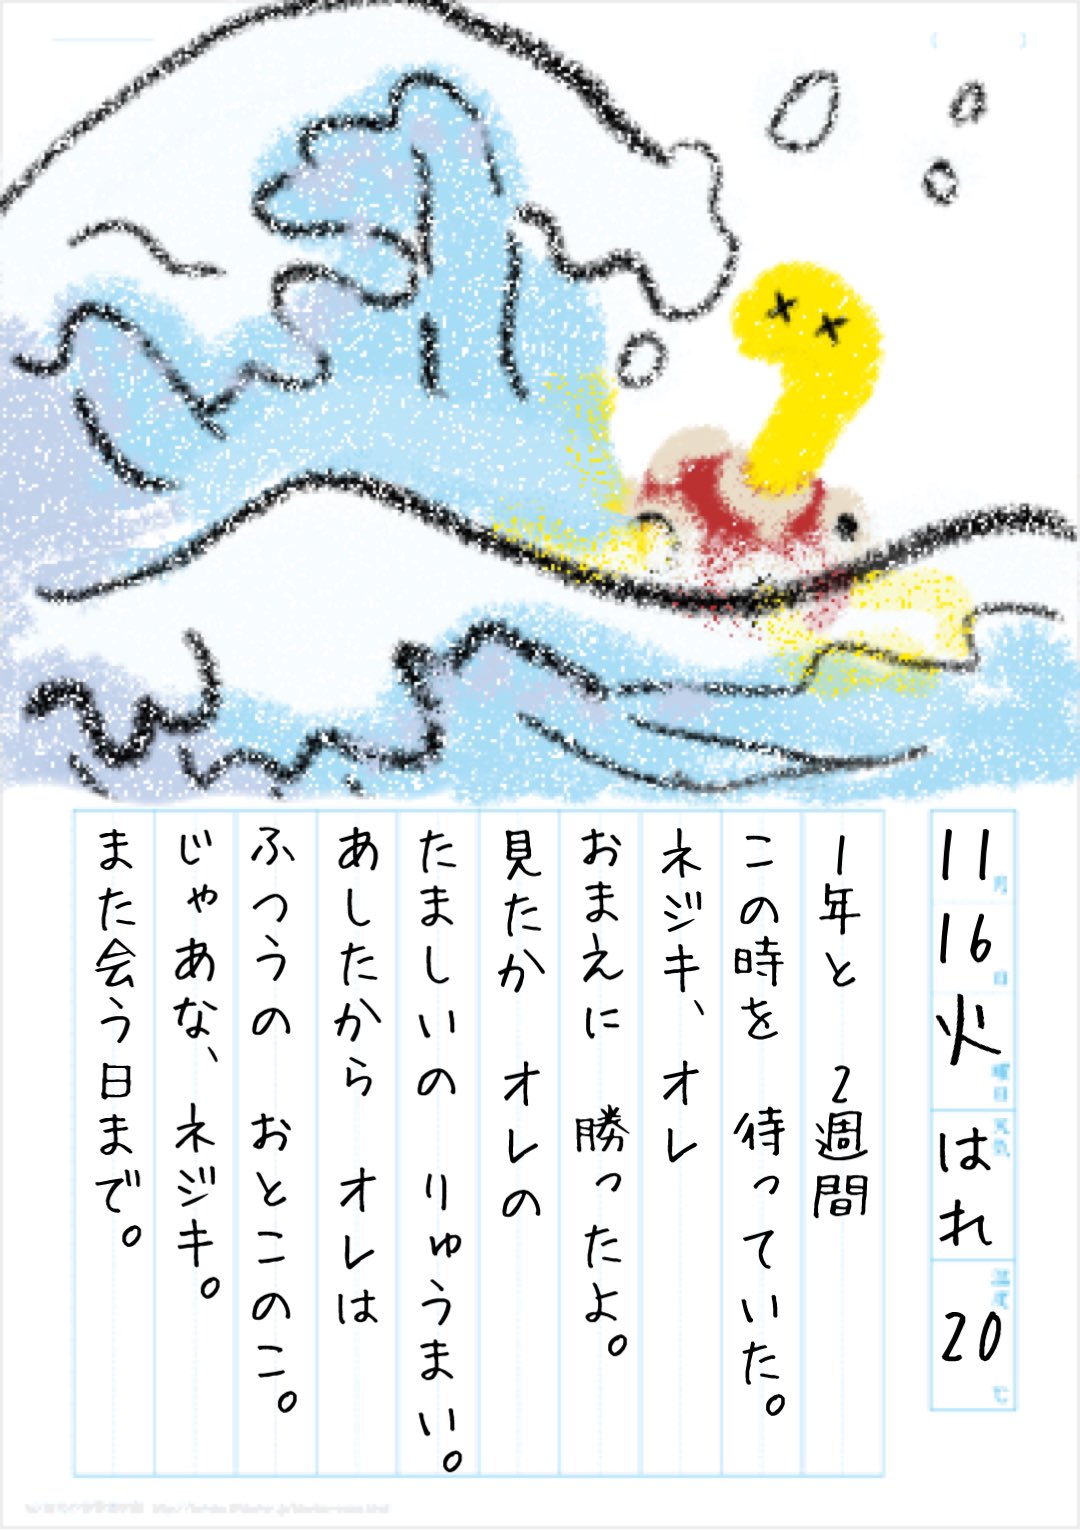 11月
16日
火曜日
天気 はれ
温度 20℃
1年と 2週間
この時を 待っていた。
ネジキ、オレ
おまえに 勝ったよ。
見たか オレの
たましいの りゅうまい。
あしたから オレは
ふつうの おとこのこ。
じゃあな、ネジキ。
また会う日まで。